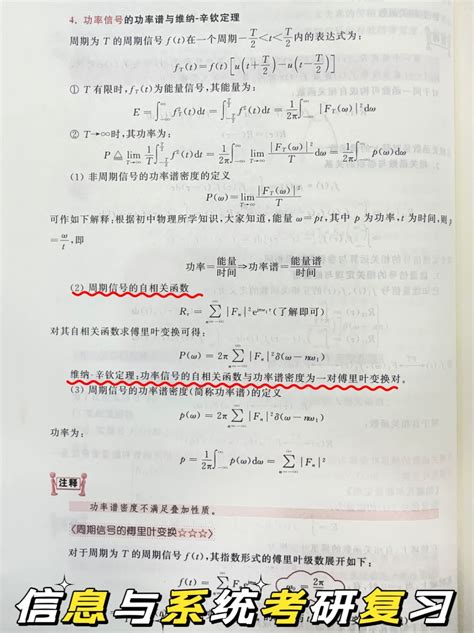 4. 功率信号的功率谱与维纳-辛钦定理
周期为 T 的周期信号 f(t)在一个周期-T/2<t<T/2内的表达式为:
f_T(t)=f(t)[u(t+T/2)-u(t-T/2)]
① T 有限时,f_T(t)为能量信号,其能量为:
E=∫_{-∞}^{∞} f_T²(t)dt=∫_{-T/2}^{T/2} f²(t)dt=1/2π ∫_{-∞}^{∞} |F_T(ω)|²dω
② T→∞时,其功率为:
P≜lim_{T→∞} 1/T ∫_{-T/2}^{T/2} f²(t)dt=1/2π ∫_{-∞}^{∞} lim_{T→∞} |F_T(ω)|²/T dω=1/2π ∫_{-∞}^{∞} P(ω)dω
(1) 非周期信号的功率谱密度的定义
P(ω)=lim_{T→∞} |F_T(ω)|²/T
可作如下解释:根据初中物理所学知识,大家知道,能量 ω=pt,其中 p 为功率,t 为时间,则
p=ω/t,即
功率=能量/时间⇒功率谱=能量谱/时间
(2) 周期信号的自相关函数
R_τ=∑_{n=-∞}^{∞} |F_n|²e^{jnω₁τ}(了解即可)
对其自相关函数求傅里叶变换可得:
P(ω)=2π∑_{n=-∞}^{∞} |F_n|²δ(ω-nω₁)
维纳-辛钦定理:功率信号的自相关函数与功率谱密度为一对傅里叶变换对。
(3) 周期信号的功率谱密度(简称功率谱)的定义
p(ω)=2π∑_{n=-∞}^{∞} |F_n|²δ(ω-nω₁)
功率为:
p=1/2π ∫_{-∞}^{∞} p(ω)dω=∑_{n=-∞}^{∞} |F_n|²
注释
功率谱密度不满足叠加性质。
〈周期信号的傅里叶变换☆☆☆〉
对于周期为 T 的周期信号 f(t),其指数形式的傅里叶级数展开如下:
信息与系统考研复习